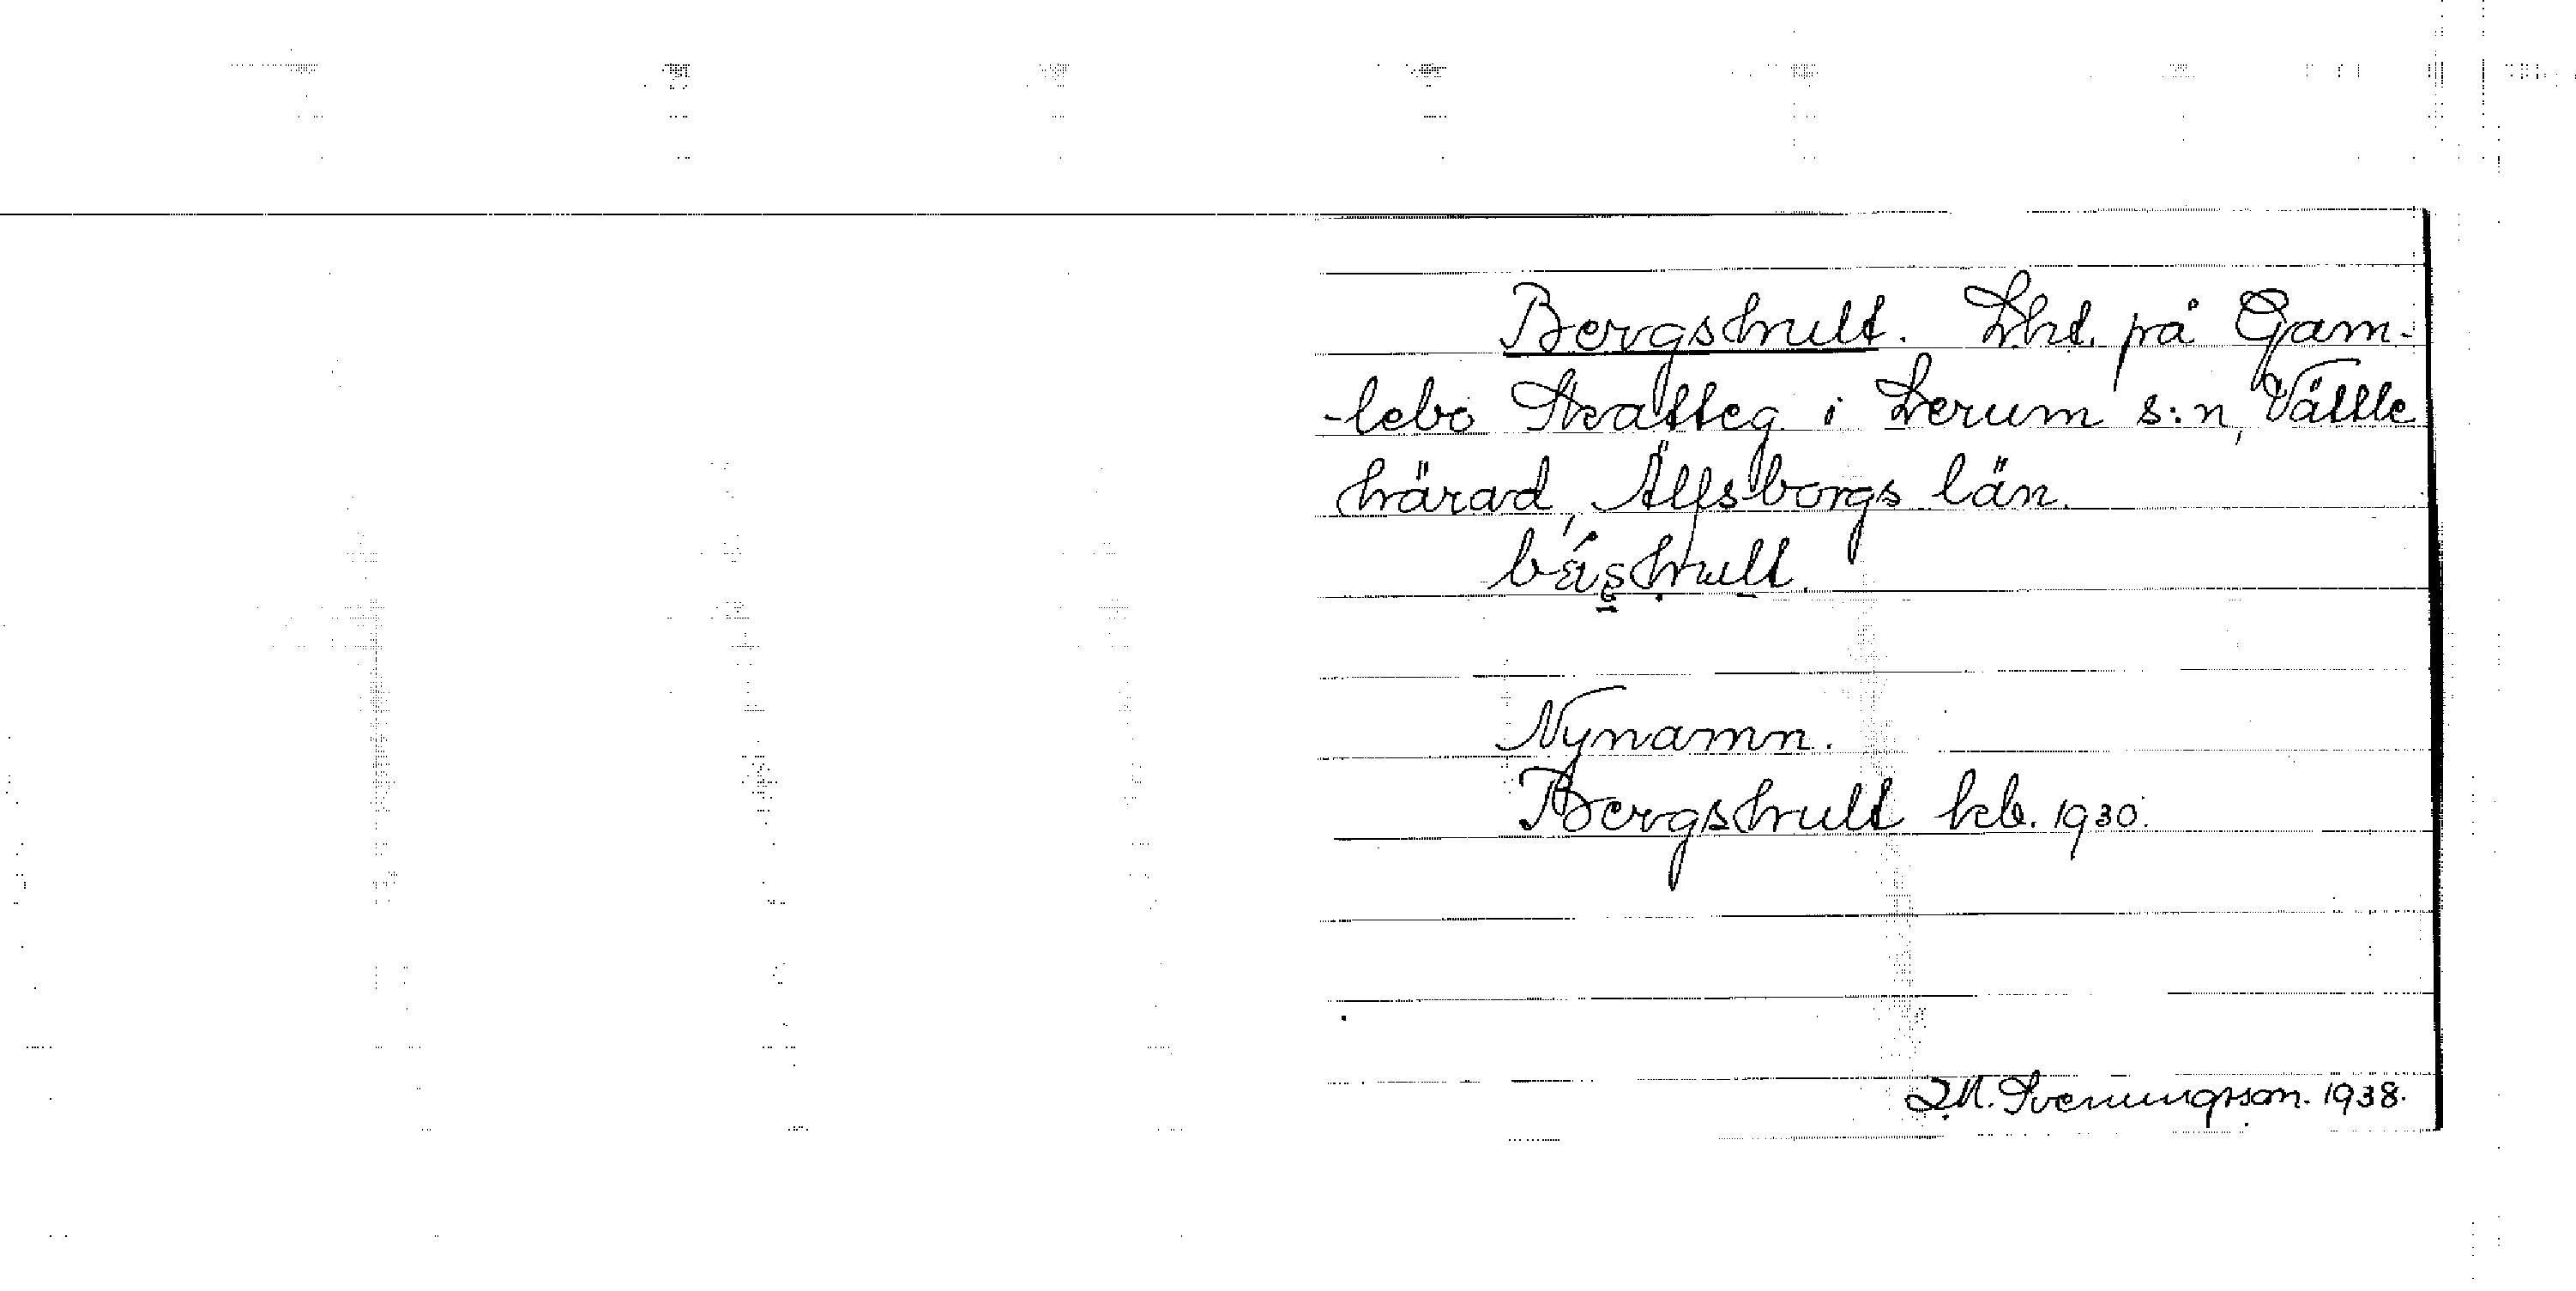 Bergshult. Lht. på Gam-
-lebo Skatteg. i Lerum s:n, Vättle
härad, Älfsborgs län.
Nynamn.
Bergshult kb. 1930.
Svenungsson. 1938.